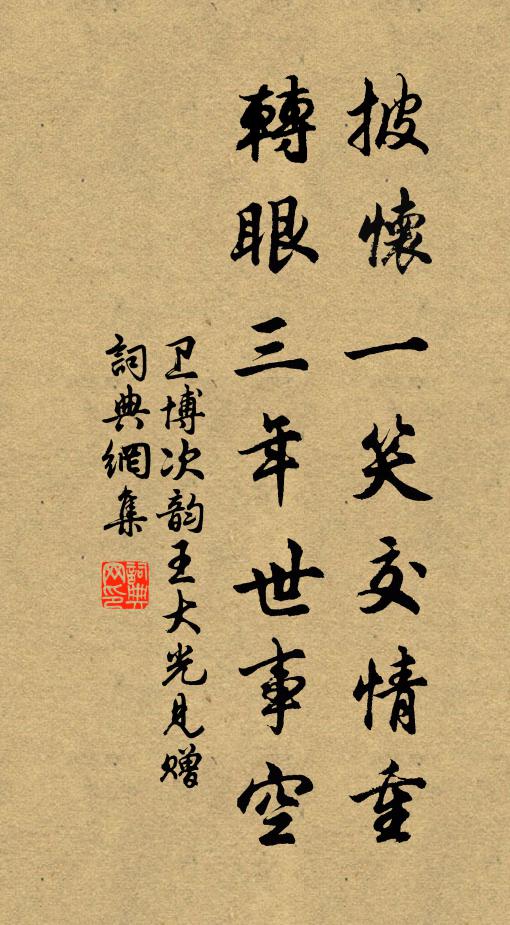 披懷一笑交情重
轉眼三年世事空
卫博次韵王大光見赠
詞典網集
詞典網印